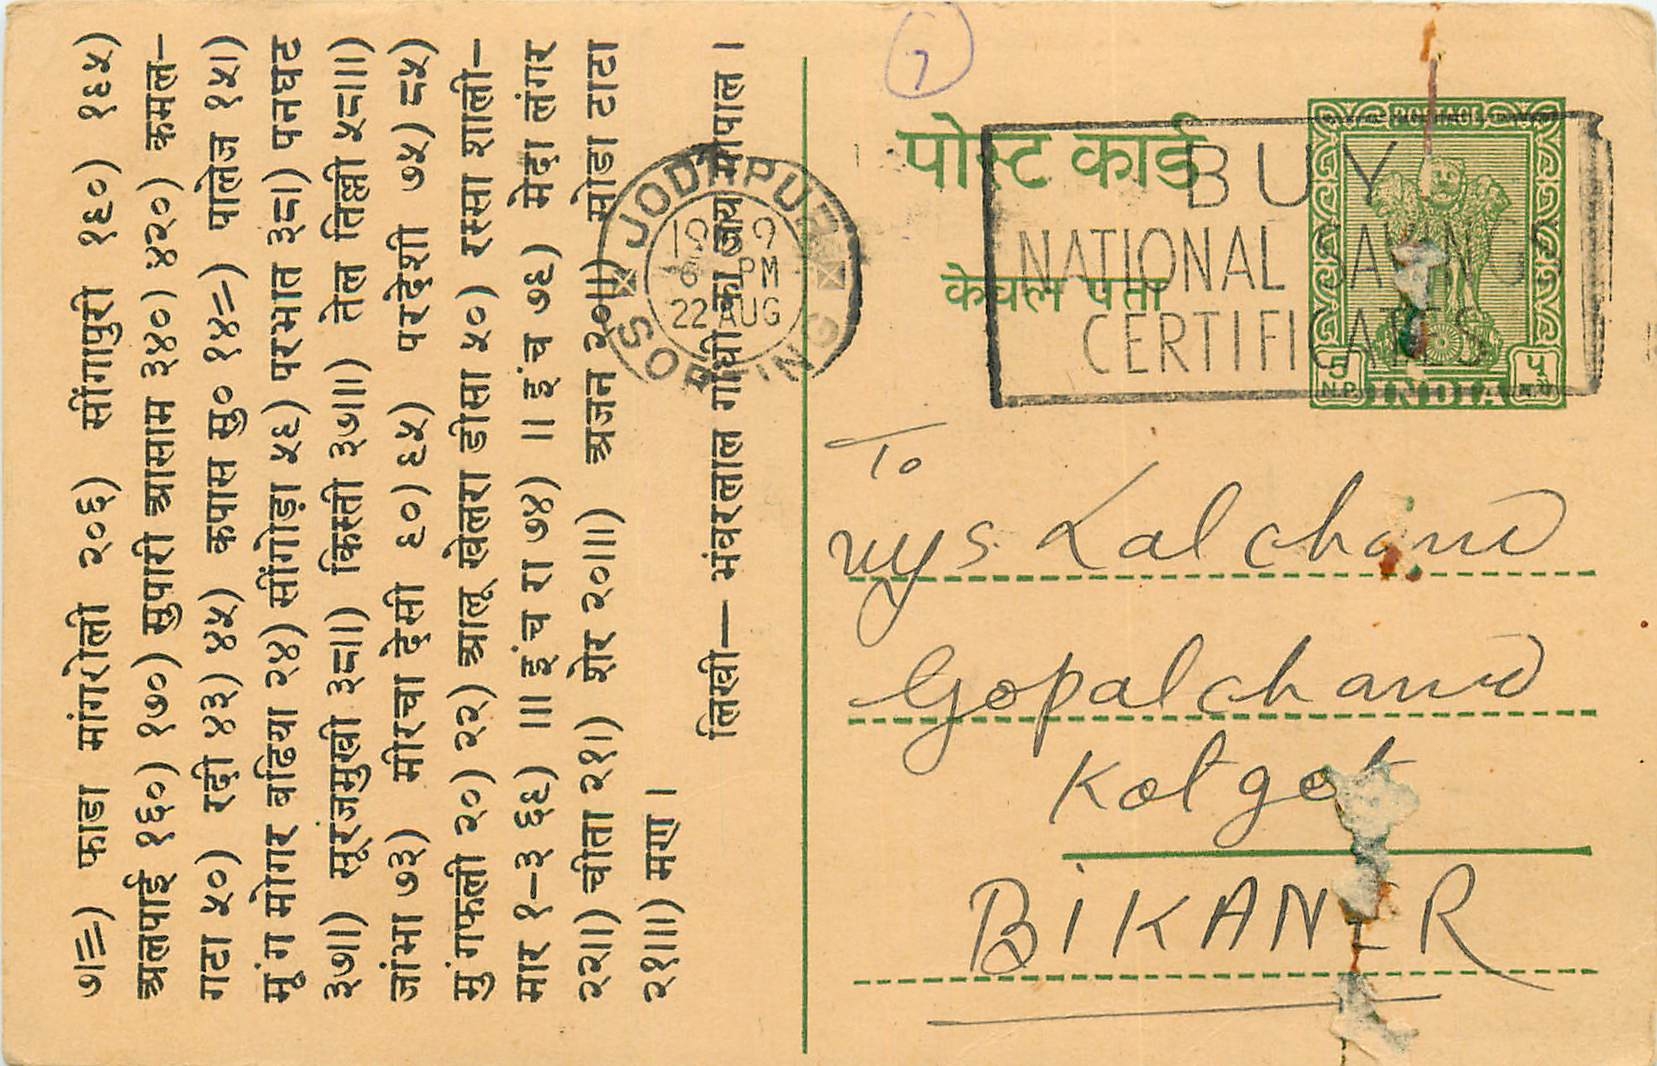 ७॥≡) फाडा मांगरोली २०६) सींगापुरी १६०) १६५)
अलपाई १६०) १७०) सुपारी आसाम ३४०) ४२०) कमल–
गटा ५०) रदी ४३) ४५) कपास सु० १४=) पालेज १५)
मुंग मोगर बढिया २४) सींगोड़ा ५६) परभात ३८।) पनघट
३७।) सूरजमुखी ३८॥) किस्ती ३७॥) तेल तिल्ली ५८॥।)
जांभा ७३) मीरचा देसी ६०) ६५) परदेशी ७५) ८५)
मुंगफली २०) २२) आलू खेलरा डीसा ५०) रस्सा शाली–
मार १–३ ६६) ॥। इंच रा ७४) ॥ इंच ७६) मेदा लंगर
२२॥) चीता २१।) शेर २०॥।) अजन २०॥) सोडा टाटा
२१॥।) मण।
लिखी— भंवरलाल गांधी का जय गोपाल।
7
पोस्ट कार्ड
केवल पता
JODHPUR
6 PM
22 AUG
BUY
NATIONAL SAVINGS
CERTIFICATES
POSTAGE
5 N.P.
INDIA
५
To
Lalchand
Gopalchand
Kotgat
BIKANER